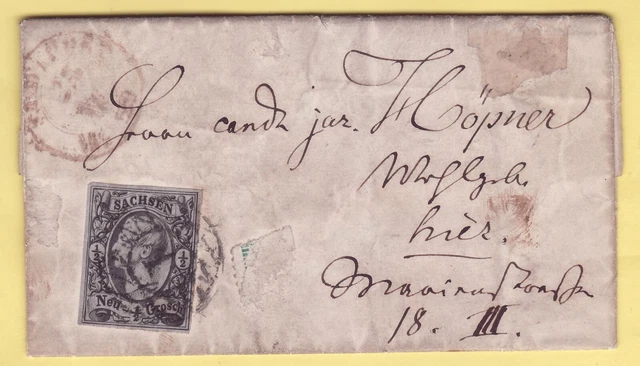 Herrn cand. jur. Höpner
Wohlgeb.
hier.
Marienstraße
18. III.
SACHSEN
½ ½
Neu ½ Grosch